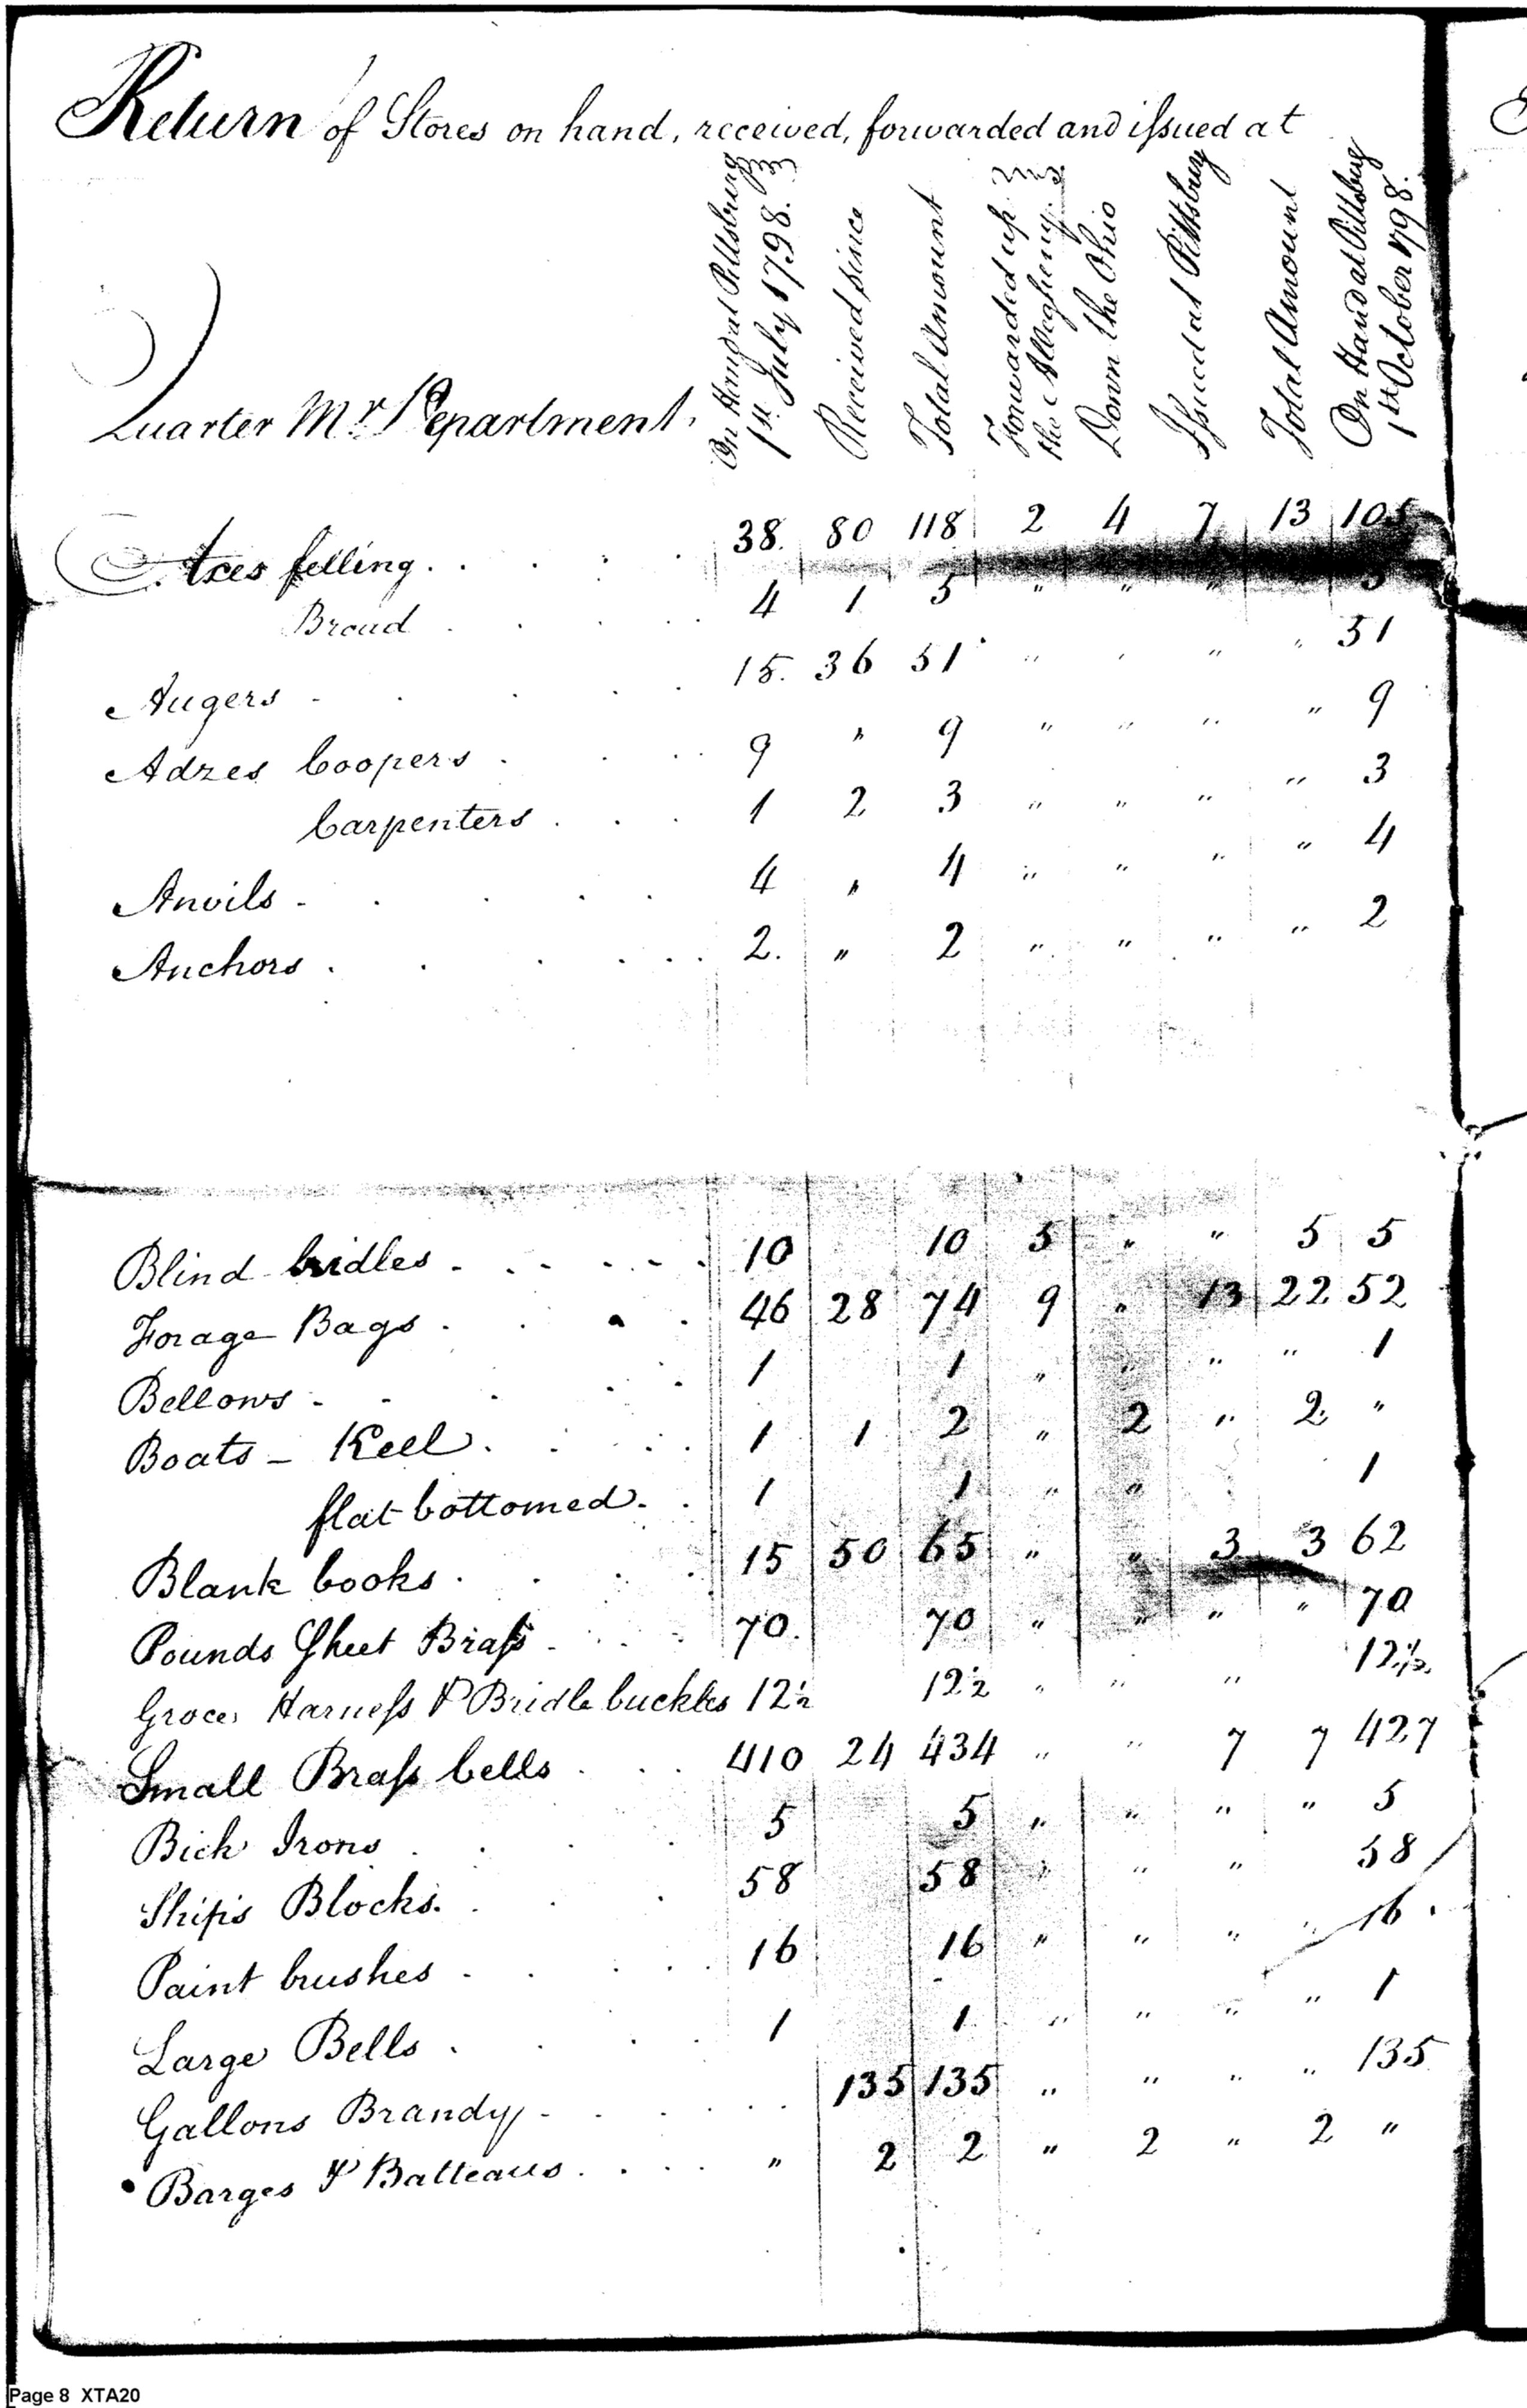 Return of Stores on hand, received, forwarded and issued at
On Hand at Pittsburg 1st. July 1798.
Received since
Total Amount
Forwarded up the Allegheny.
Down the Ohio
Issued at Pittsburg
Total Amount
On Hand at Pittsburg 1st October 1798.
Quarter Mr. Department.
Axes felling . . . . 38. 80 118 2 4 7 13 105
Broad . . . . 4 1 5 " " " 5
Augers - . . . . 15. 36 51 " " " " 51
Adzes Coopers . . . 9 " 9 " " " " 9
Carpenters . . . 1 2 3 " " " " 3
Anvils - . . . . 4 " 4 " " " " 4
Anchors . . . . . . 2. " 2 " " " " 2
Blind bridles - . . . . . 10 10 5 " " 5 5
Forage Bags . . . . 46 28 74 9 " 13 22 52
Bellows - - . . . 1 1 " " " " 1
Boats - Keel . . . . 1 1 2 " 2 " 2 "
flat bottomed - . 1 1 " " 1
Blank books . . . . 15 50 65 " " 3 3 62
Pounds Sheet Brass - . . . 70. 70 " " " " 70
Groce, Harness & Bridle buckles 12½ 12½ " " " 12½
Small Brass bells . . . 410 24 434 " " 7 7 427
Bick Irons . . . . 5 5 " " " " 5
Ship's Blocks. . . . 58 58 " " " 58
Paint brushes - . . . . 16 16 " " " " 16
Large Bells . . . . 1 1 " " " " 1
Gallons Brandy - . . . . 135 135 " " " " 135
Barges & Batteaus . . . . " 2 2 " 2 " 2 "
Page 8 XTA20